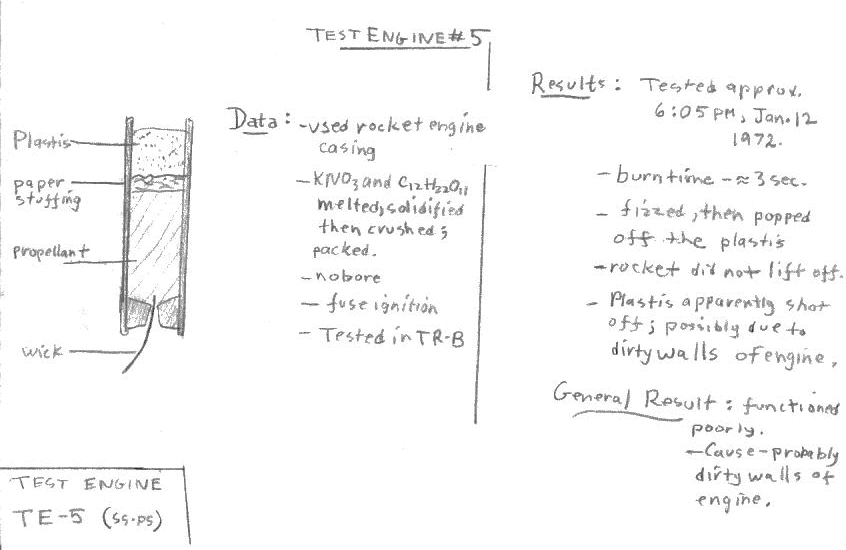 TEST ENGINE #5
Plastis
paper
stuffing
propellant
wick
Data: -used rocket engine
casing
-KNO3 and C12H22O11
melted, solidified
then crushed;
packed.
-no bore
- fuse ignition
- Tested in TR-B
Results: Tested approx.
6:05 PM, Jan. 12
1972.
- burn time - ≈ 3 sec.
- fizzed, then popped
off the plastis
- rocket did not lift off.
- Plastis apparently shot
off; possibly due to
dirty walls of engine.
General Result: functioned
poorly.
- Cause - probably
dirty walls of
engine.
TEST ENGINE
TE-5 (SS-PS)